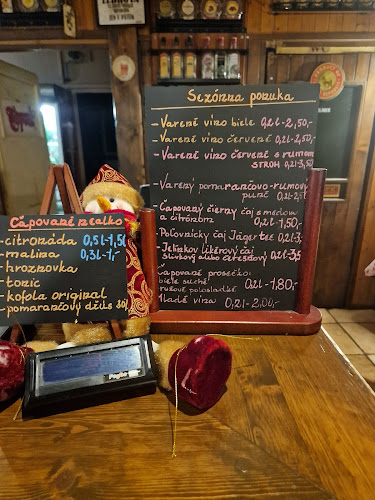 Sezónna ponuka
- Varené víno biele 0,2l - 2,50,-
- Varené víno červené 0,2l - 2,50,-
- Varené víno červené s rumom STROH 0,2l - 3,50
- Varený pomarančovo-rumový punč
- Čapovaný čierny čaj s medom a citrónom 0,2l - 1,50,-
- Poľovnícky čaj Jäger tee 0,2l - 3,-
- Jelínkov likérový čaj slivkový alebo čerešňový 0,2l - 3,5
- Čapované prosecco:
biele suché
ružové polosladké 0,2l - 1,80,-
Mladé vína 0,2l - 2,00,-
Čapované nealko
- citronáda 0,5l - 1,50
- malina 0,3l - 1,-
- hroznovka
- tonic
- kofola original
- pomarančový džús